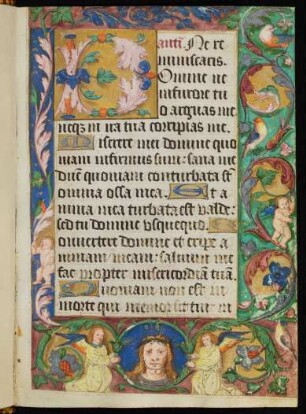 anti Ne re
miniscaris.
Omine ne
in furore tu
o arguas me
neqz in ira tua corripias me.
Miserere mei domine quo
niam infirmus sum: sana me
dne quoniam conturbata st
omnia ossa mea. Et a
nima mea turbata est valde:
sed tu domine usquequo.
Convertere domine et eripe a
nimam meam: salvum me
fac propter misericordiam tuam.
Quoniam non est in
morte qui memor sit tui: in